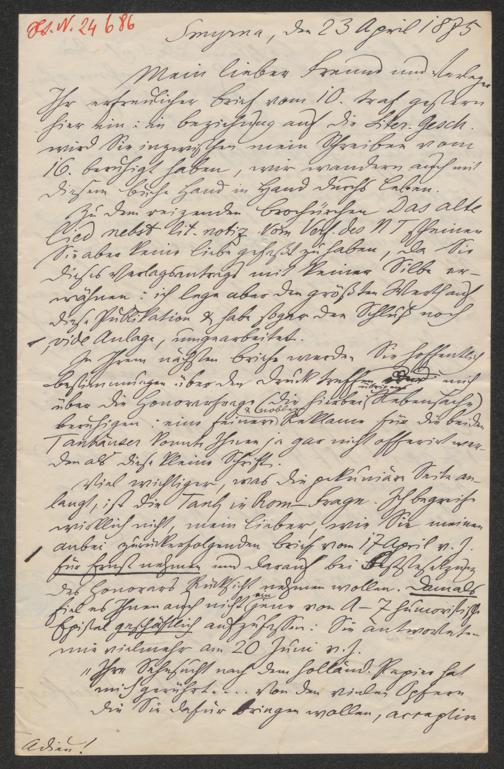 H. I. N. 24686
Smyrna, den 23 April 1885
Mein lieber Freund und Verleger
Ihr erfreulicher Brief vom 10. traf gestern
hier ein: in beziehung auf die Liter. Gesch.
wird Sie inzwischen mein Schreiben vom
16. beruhigt haben, wir wandern auch mit
diesem buche Hand in Hand durchs Leben.
Zu dem reizenden brochürchen Das alte
Lied nebst lit. notiz vom Verf. des N T scheinen
Sie aber keine liebe gefaßt zu haben, da Sie
dieses Verlagsantrags mit keiner Silbe er-
wähnen: ich lege aber den größten Werth auf
diese Publikation & habe sogar den Schluß noch
, vide Anlage, umgearbeitet.
In Ihrem nächsten briefe werden Sie hoffentlich
bestimmungen über den Druck treffen und mich
über die Honorarfrage (die hierbei Nebensache)
beruhigen: eine feinere & noblere Reklame für die beiden
Tanhäuser konnte Ihnen ja gar nicht offerirt wer-
den als diese kleine Schrift.
Viel wichtiger, was die pekuniäre Seite an-
langt, ist die Tanh. in Rom-Frage. Ich begreife
wirklich nicht, mein lieber, wie Sie meinen
anbei zurückerfolgenden brief vom 17 April v. J.
für Ernst nehmen und darauf bei Festsetzung
des Honorars Rücksicht nehmen wollen. Damals
fiel es Ihnen auch nicht ein jene von A-Z humoristische
Epistel geschäftlich aufzufassen: Sie antworteten
mir vielmehr am 20 Juni v. J.
"Ihre Sehnsucht nach dem holländ. Papier hat
mich gerührt.... von den vielen Opfern
die Sie dafür bringen wollen, acceptire
Adieu!